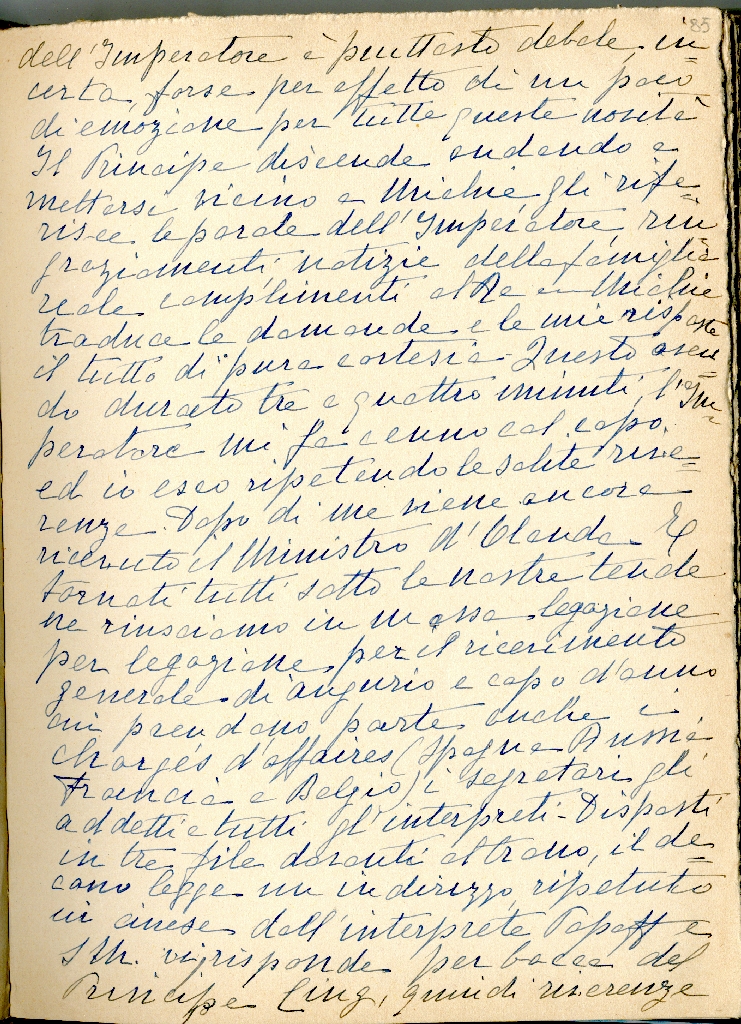 85
dell'Imperatore è piuttosto debole, in=
certa, forse per effetto di un poco
di emozione per tutte queste novità
Il Principe discende andando a
mettersi vicino a Michie, gli rife=
risce le parole dell'Imperatore, rin
graziamenti, notizie della famiglia
reale complimenti al Re e Michie
traduce le domande e le mie risposte
il tutto di pura cortesia - Questo aven
do durato tre o quattro minuti, l'Im=
peratore mi fa cenno col capo.
ed io esco ripetendo le solite rive=
renze. Dopo di me viene ancora
ricevuto il Ministro d'Olanda. E
tornati tutti sotto le nostre tende
ne riusciamo in massa legazione
per legazione per il ricevimento
generale di augurio e capo d'anno
cui prendono parte anche i
chargés d'affaires (Spagna Russia
Francia e Belgio) i segretari gli
addetti e tutti gl'interpreti - Disposti
in tre file davanti al trono, il de=
cano legge un indirizzo, ripetuto
in cinese dall'interprete Popoff e
S.M. vi risponde per bocca del
Principe Cing, quindi riverenze